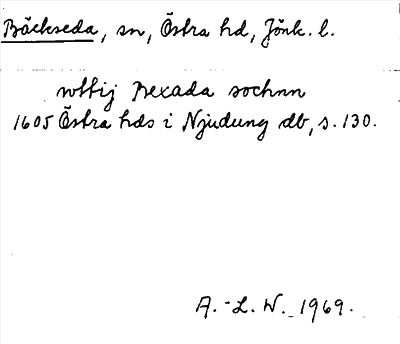 Bäckseda, sn, Östra hd, Jönk. l.
wttij Bexada sochnn
1605 Östra hds i Njudung db, s. 130.
A.-L. W. 1969.